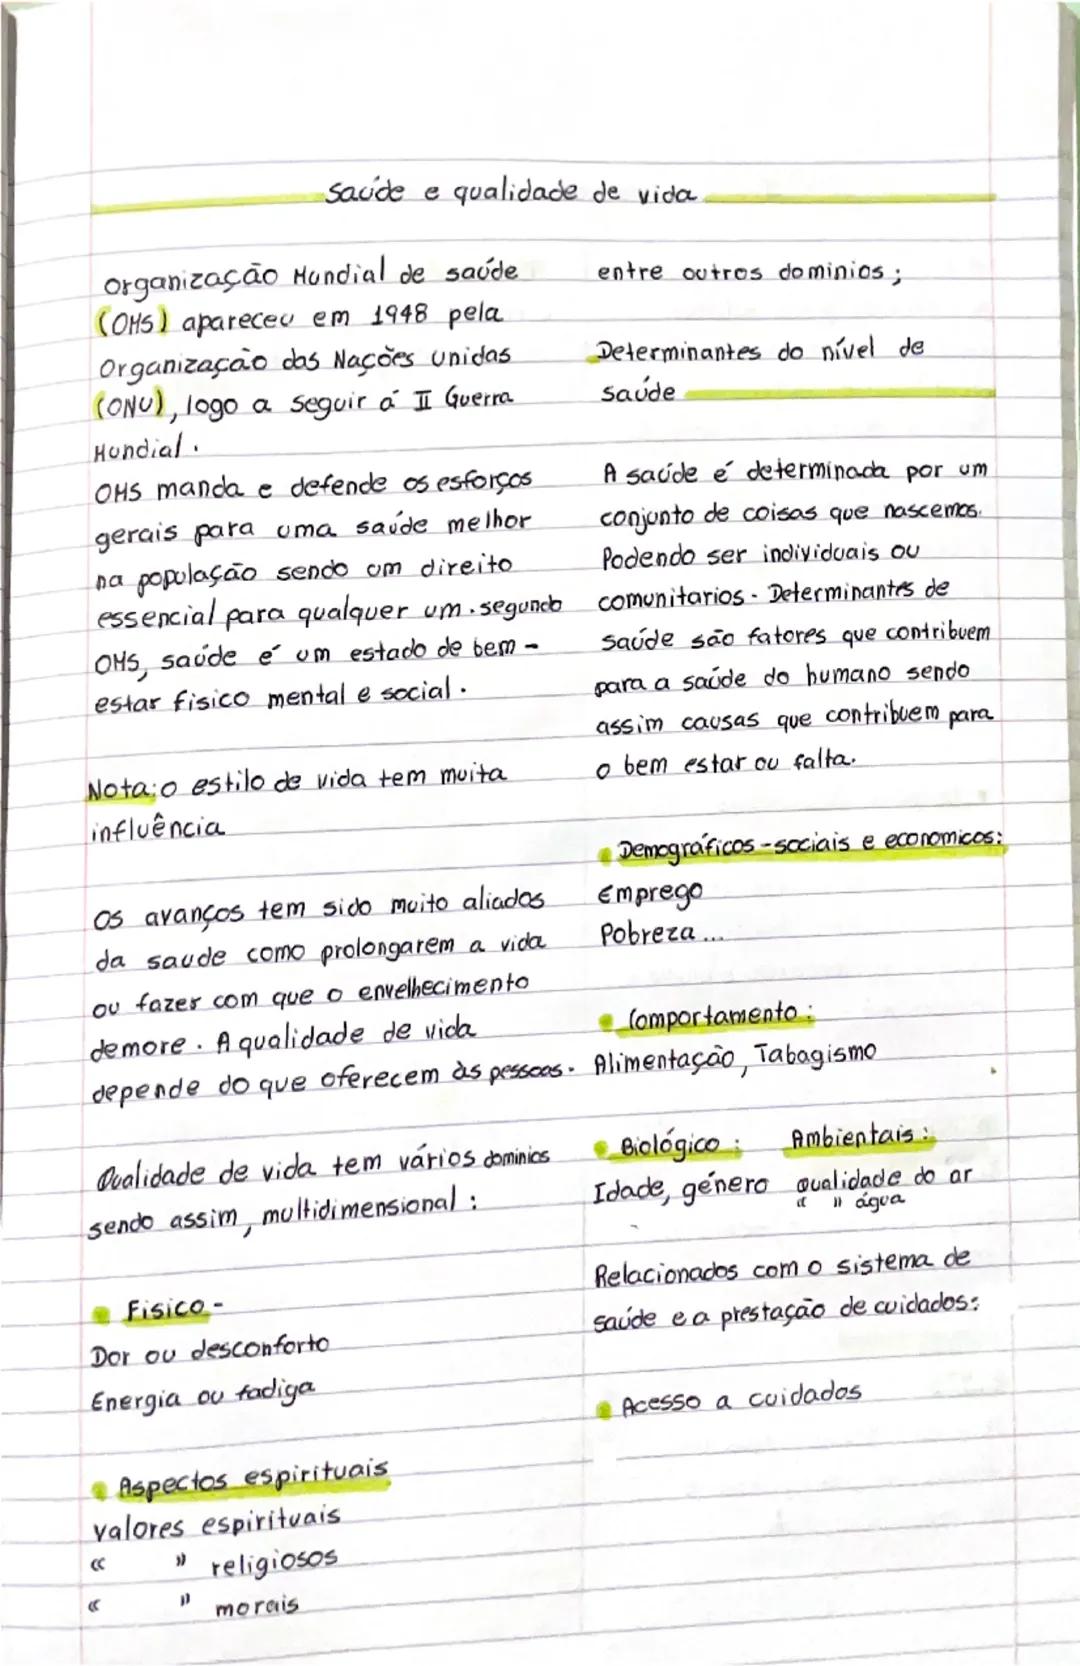 Saúde e qualidade de vida
Organização Mundial de saúde
(OMS) apareceu em 1948 pela
Organização das Nações Unidas
(ONU), logo a seguir á II Guerra
Mundial.
OMS manda e defende os esforços
gerais para uma saúde melhor
na população sendo um direito
essencial para qualquer um. segundo
OMS, saúde é um estado de bem-
estar fisico mental e social.
Nota: o estilo de vida tem muita
influência
Os avanços tem sido muito aliados
da saude como prolongarem a vida
ou fazer com que o envelhecimento
demore. A qualidade de vida
depende do que oferecem às pessoas.
Qualidade de vida tem vários dominios
sendo assim, multidimensional:
Fisico -
Dor ou desconforto
Energia ou fadiga
Aspectos espirituais
valores espirituais
" " religiosos
" " morais
entre outros dominios;
Determinantes do nível de
saúde
A saúde é determinada por um
conjunto de coisas que nascemos.
Podendo ser individuais ou
comunitarios. Determinantes de
saúde são fatores que contribuem
para a saúde do humano sendo
assim causas que contribuem para
o bem estar ou falta.
Demográficos-sociais e economicos:
Emprego
Pobreza...
Comportamento:
Alimentação, Tabagismo
Biológico: Ambientais:
Idade, género qualidade do ar
" " água
Relacionados com o sistema de
saúde e a prestação de cuidados:
Acesso a cuidados